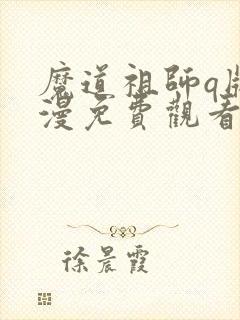 魔道祖師q版
漫免費觀看
徐晨霞